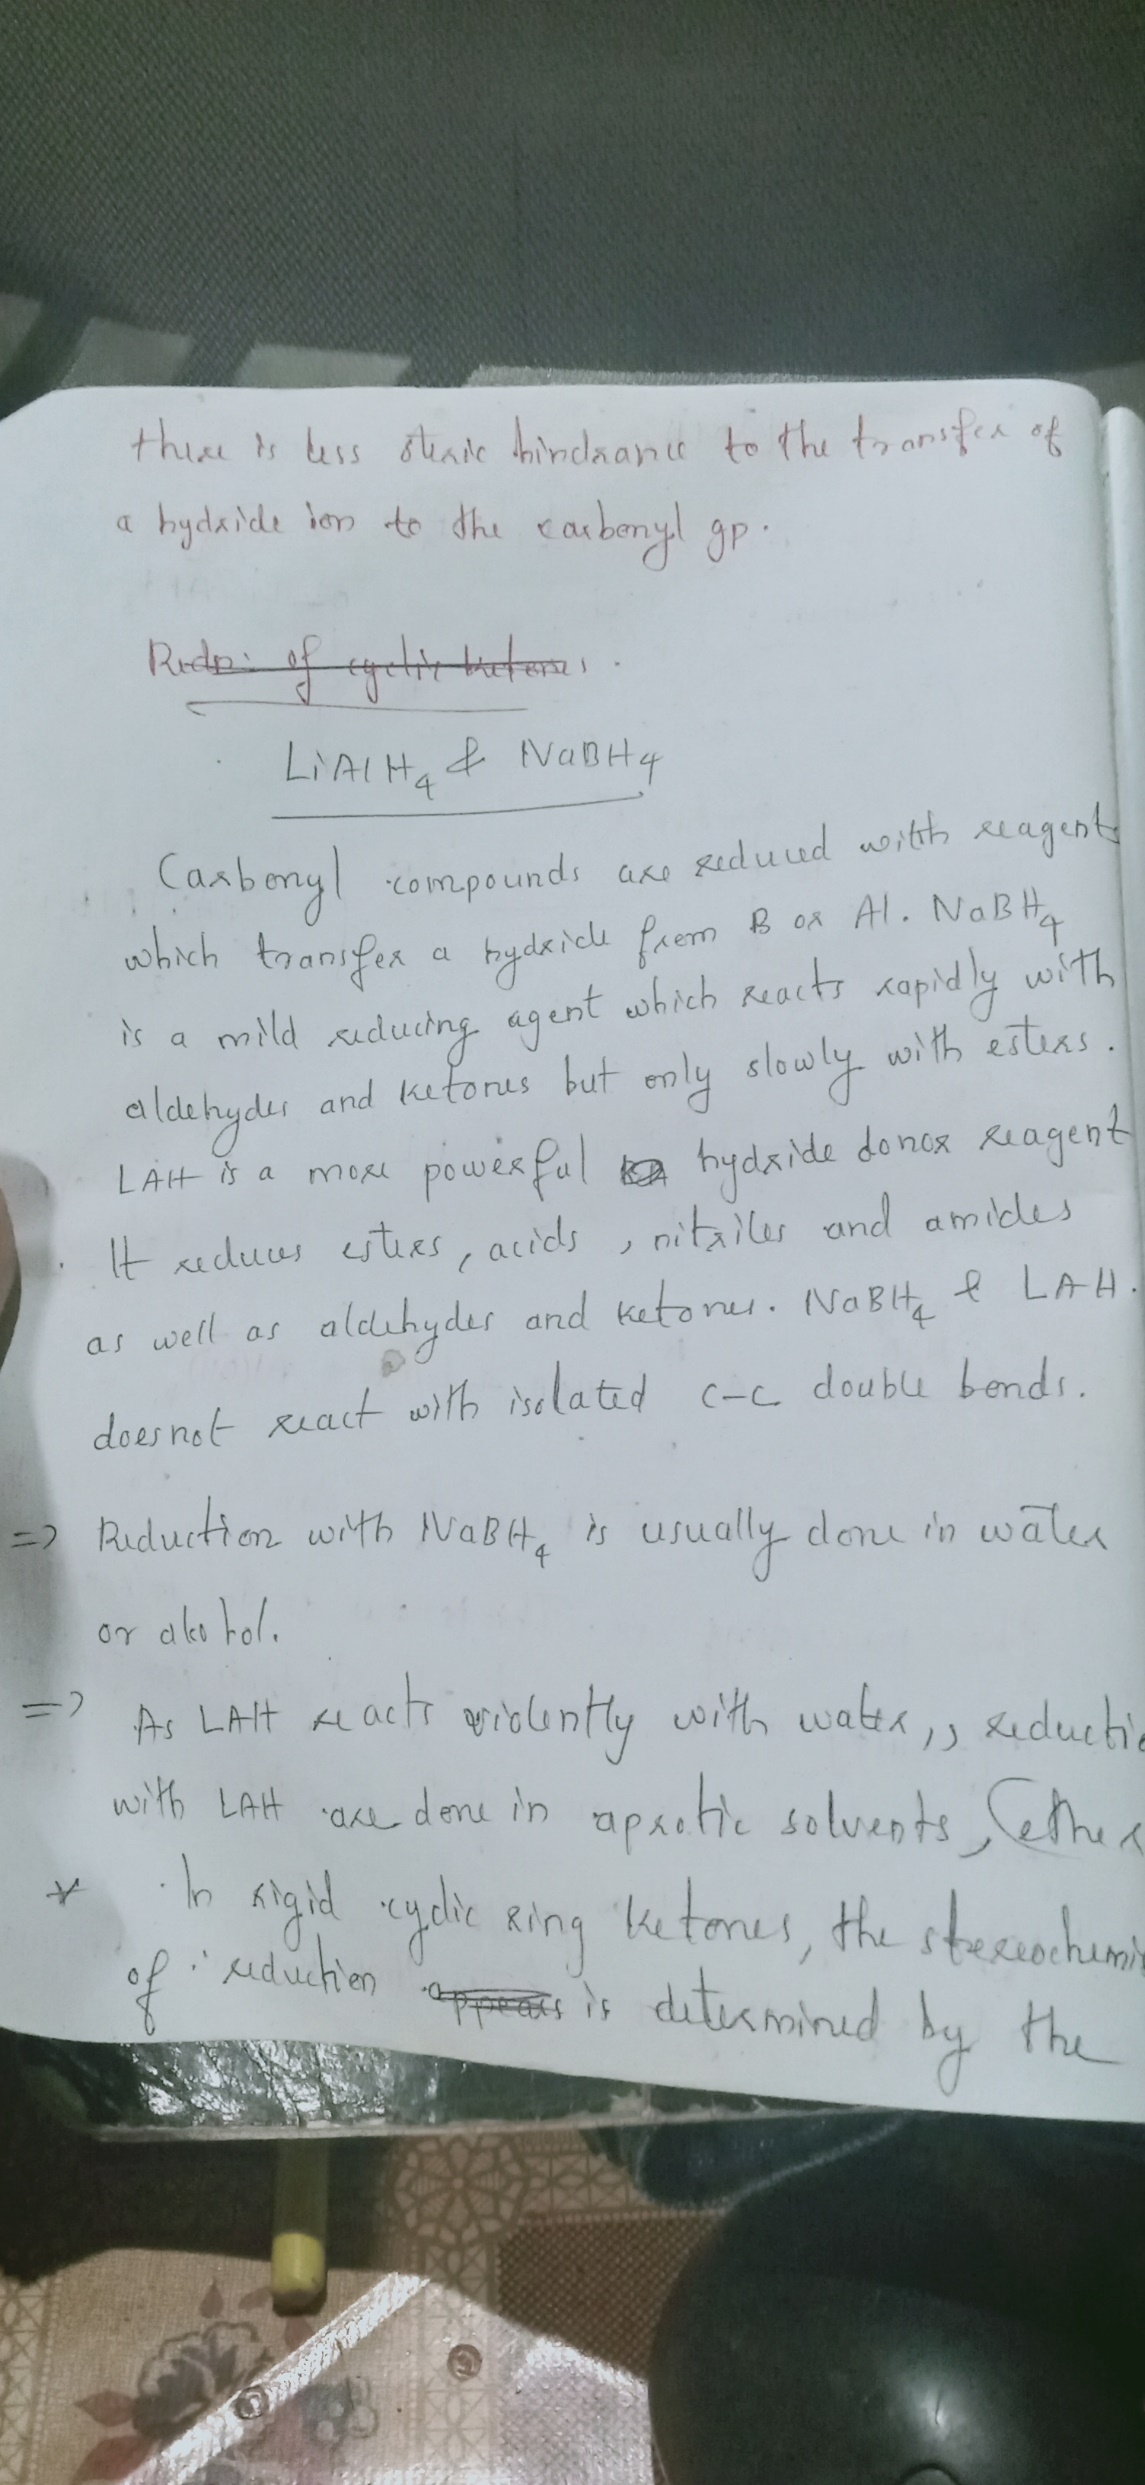 there is less steric hindrance to the transfer of
a hydride ion to the carbonyl gp.
Redn: of cyclic ketones.
LiAlH4 & NaBH4
Carbonyl compounds are reduced with reagents
which transfer a hydride from B or Al. NaBH4
is a mild reducing agent which reacts rapidly with
aldehydes and ketones but only slowly with esters.
LAH is a more powerful hydride donor reagent
It reduces esters, acids, nitriles and amides
as well as aldehydes and ketones. NaBH4 & LAH.
doesnot react with isolated c-c double bonds.
=> Reduction with NaBH4 is usually done in water
or akohol.
=> As LAH reacts violently with water,, reductio
with LAH are done in aprotic solvents, (ether
* In rigid cyclic ring ketones, the stereochemi
of reduction appears is determined by the